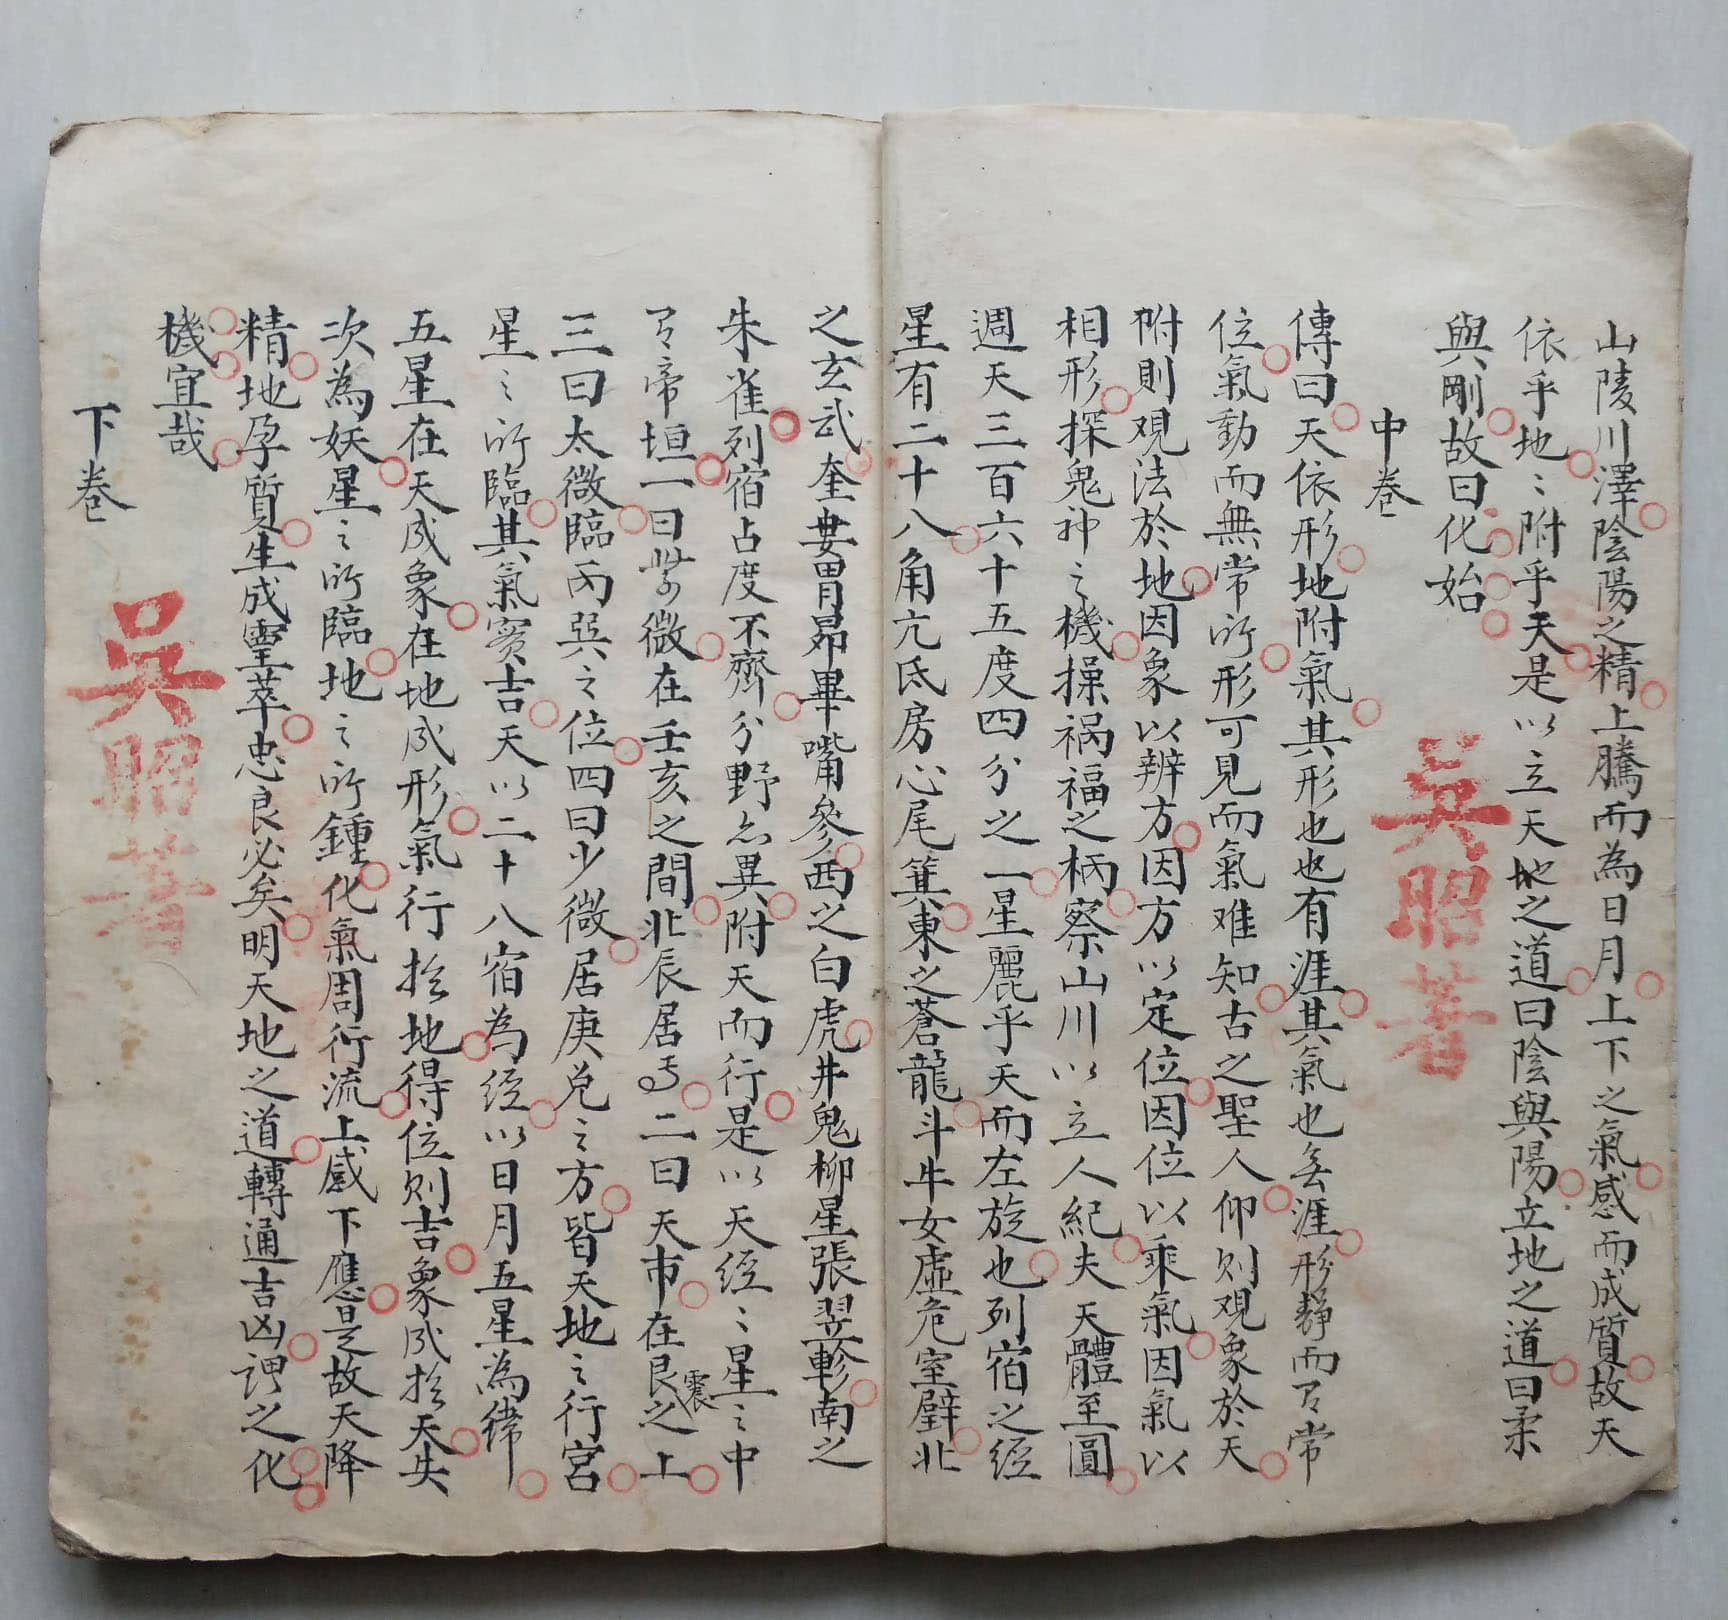 山陵川澤陰陽之精上騰而為日月上下之氣感而成質故天
依乎地〻附乎天是以立天地之道曰陰與陽立地之道曰柔
與剛故曰化始
中巻
吳昭著
傳曰天依形地附氣其形也也有涯其氣也無涯形靜而有常
位氣動而無常所形可見而氣难知古之聖人仰則观象於天
附則观法於地因象以辨方因方以定位因位以乘氣因氣以
相形探鬼神之機操禍福之柄察山川以立人紀夫天體至圓
週天三百六十五度四分之一星麗乎天而左旋也列宿之経
星有二十八角亢氐房心尾箕東之蒼龍斗牛女虛危室壁北
之玄武奎婁胃昴畢嘴參西之白虎井鬼柳星張翌軫南之
朱雀列宿占度不齊分野亦異附天而行是以天経〻星之中
有帝垣一曰紫微在壬亥之間北辰居焉二曰天市在艮震之上
三曰太微臨丙巽之位四曰少微居庚兌之方皆天地之行宮
星之所臨其氣寔吉天以二十八宿為経以日月五星為緯
五星在天成象在地成形氣行扵地得位則吉象成扵天失
次為妖星之所臨地之所鍾化氣周行流上感下應是故天降
精地孕質生成霊萃忠良必矣明天地之道轉通吉凶謂之化
機宜哉
下巻
吳昭著